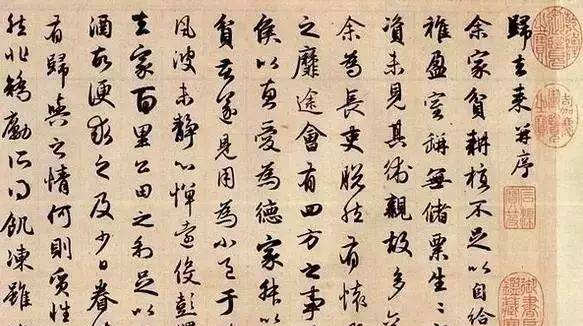 歸去來并序
余家貧耕植不足以自給
稚盈室缾無儲粟生〻
資未見其術親故多
余為長吏脫然有懷
之靡途會有四方之事
侯以惠愛為德家叔以
貧苦遂見用為小邑于
風波未靜心憚遠役彭澤
去家百里公田之利足以
酒故便求之及少日眷
有歸與之情何則質性
然非矯勵所得飢凍雖